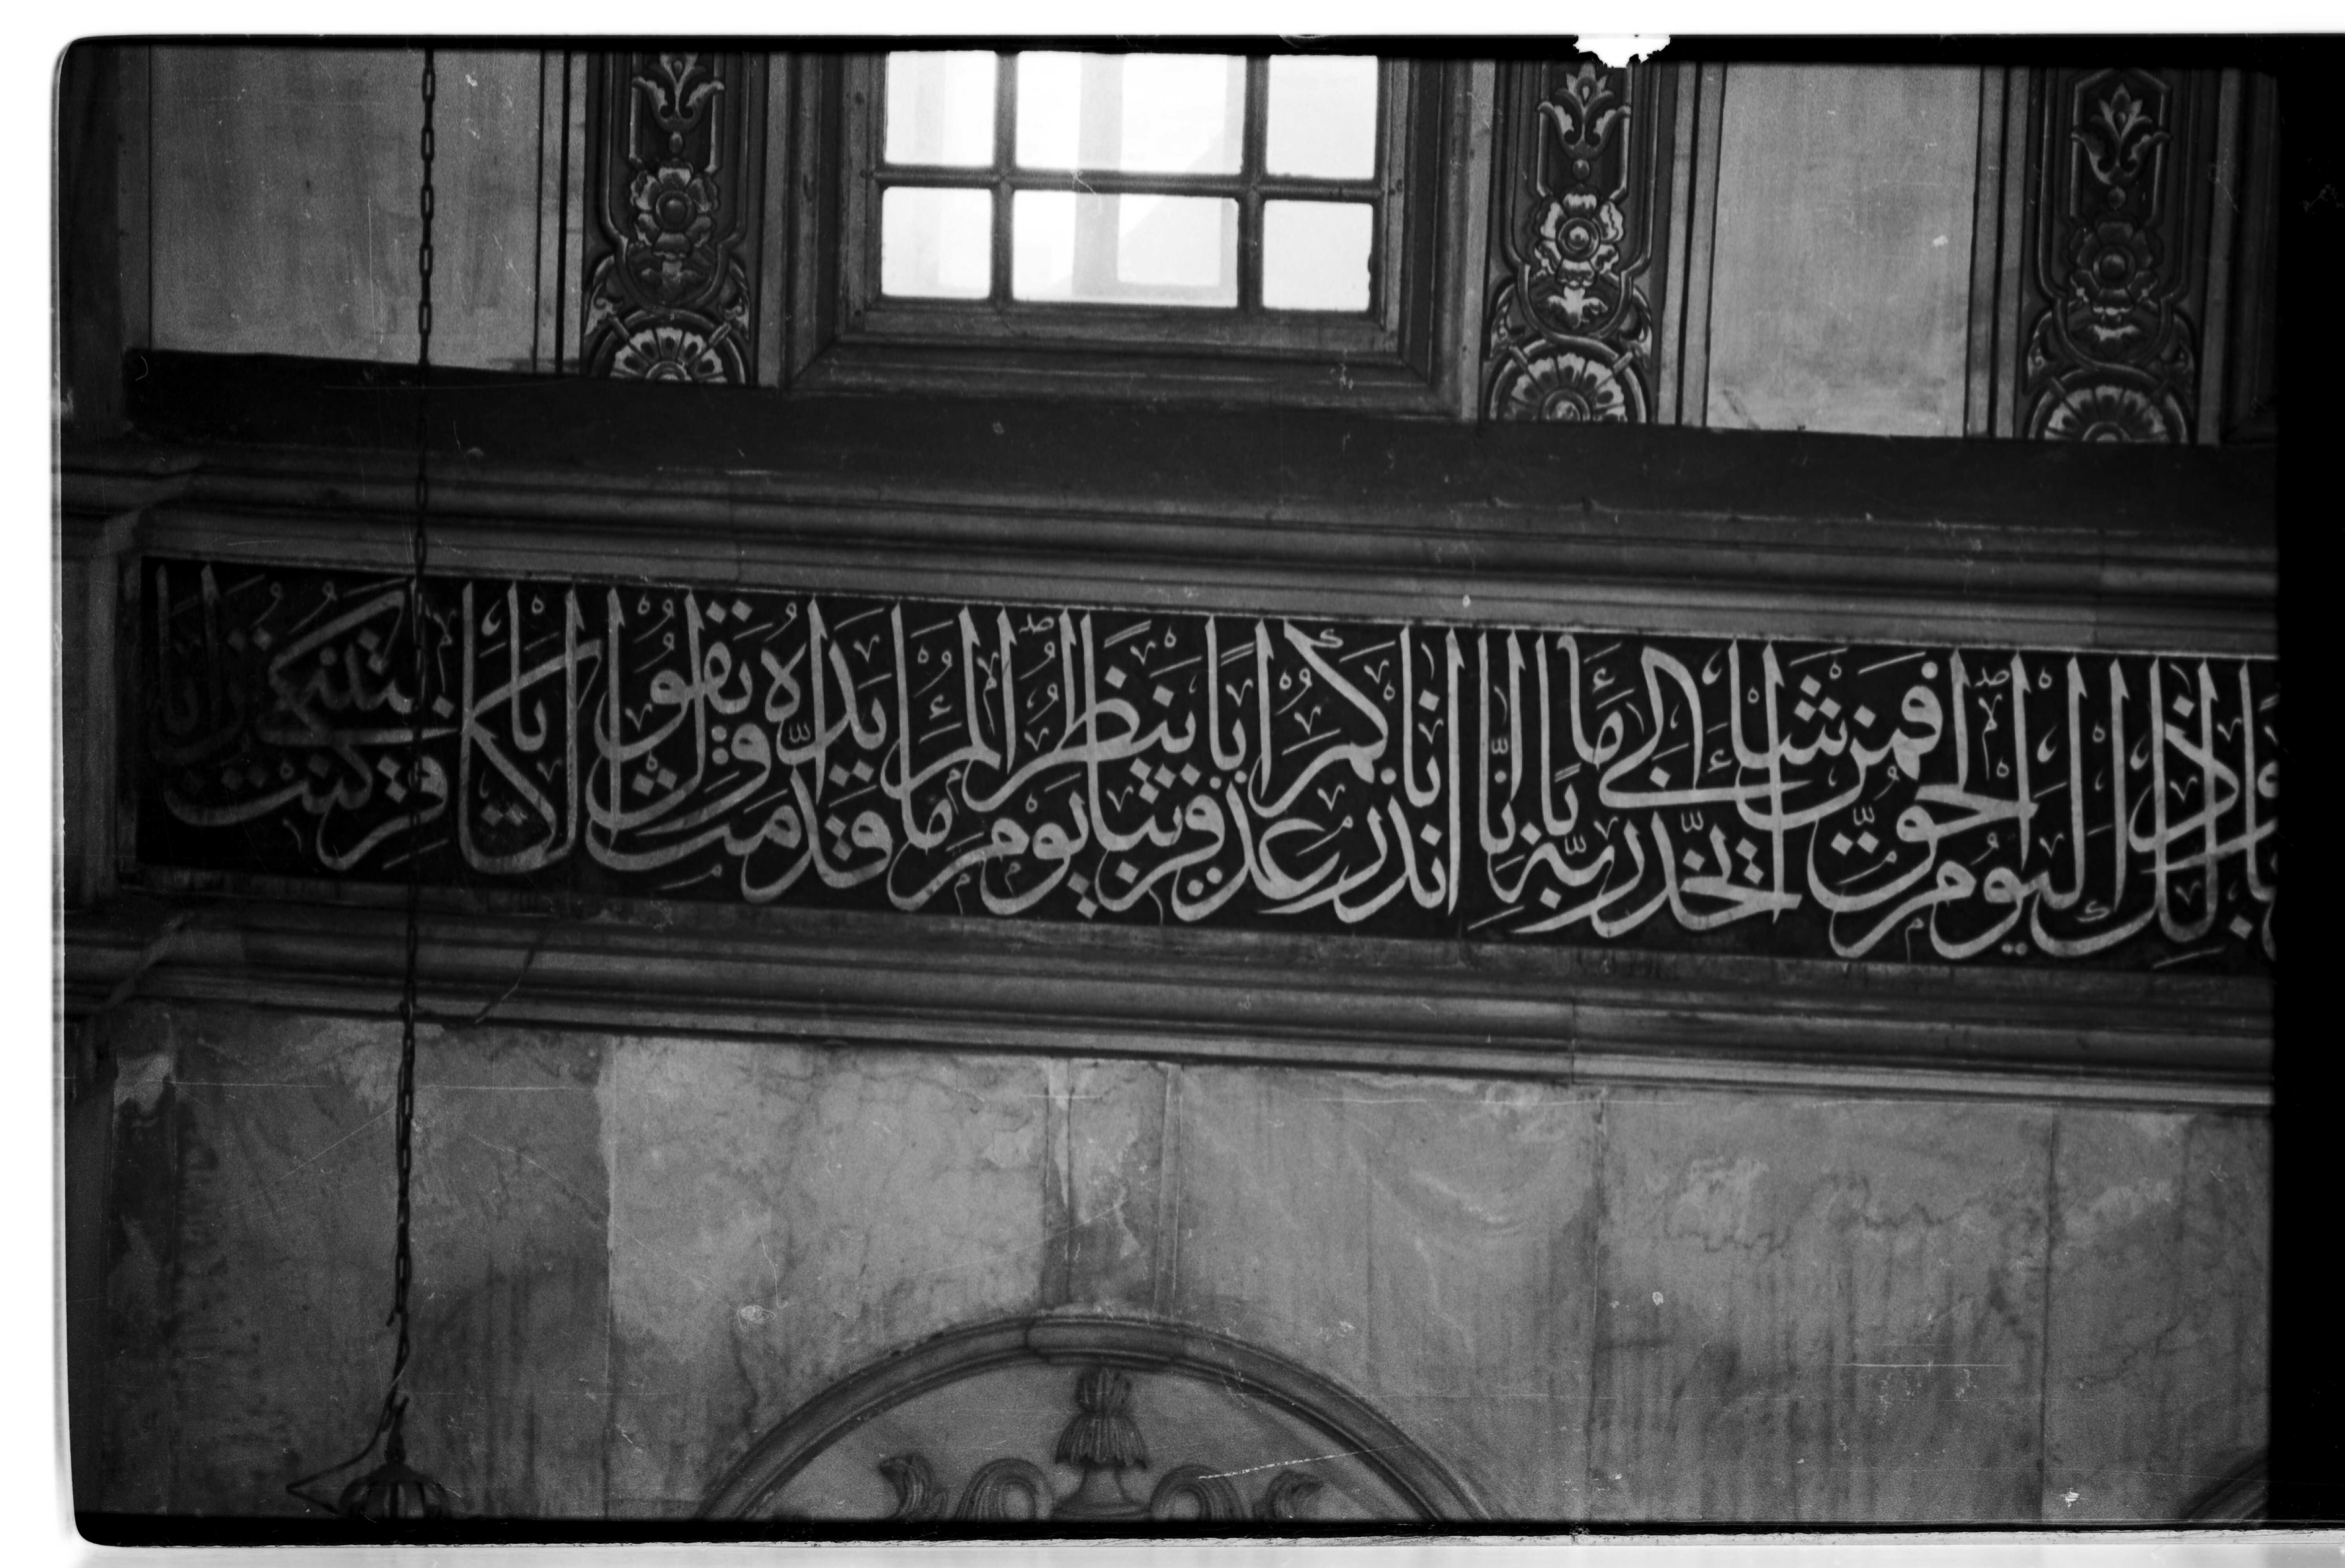 ذلك اليوم الحق فمن شاء اتخذ ربه مآبا انا انذرناكم عذابا قريبا يوم ينظر المرء ما قدمت يداه ويقول الكافر يا ليتني كنت ترابا